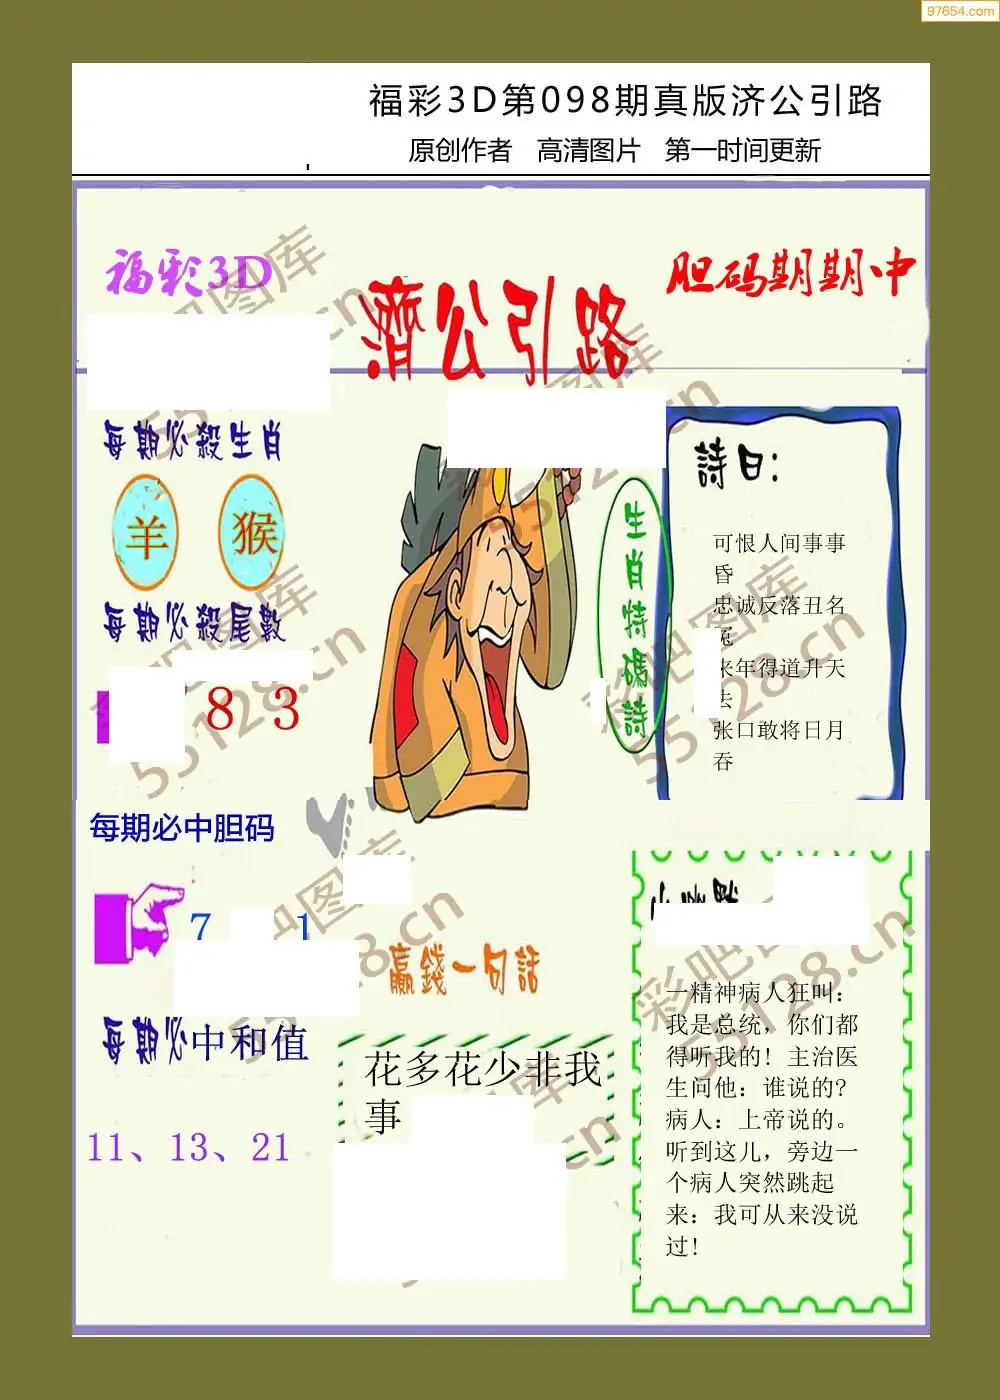 97654.com
福彩3D第098期真版济公引路
原创作者 高清图片 第一时间更新
福彩3D
濟公引路
胆码期期中
每期必殺生肖
羊 猴
每期必殺尾數
8 3
生肖特碼詩
詩曰:
可恨人间事事
昏
忠诚反落丑名
冤
来年得道升天
去
张口敢将日月
吞
每期必中胆码
7 1
每期必中和值
11、13、21
赢錢一句話
花多花少非我
事
一精神病人狂叫:
我是总统，你们都
得听我的! 主治医
生问他: 谁说的?
病人: 上帝说的。
听到这儿，旁边一
个病人突然跳起
来: 我可从来没说
过!
彩吧图库
55128.cn